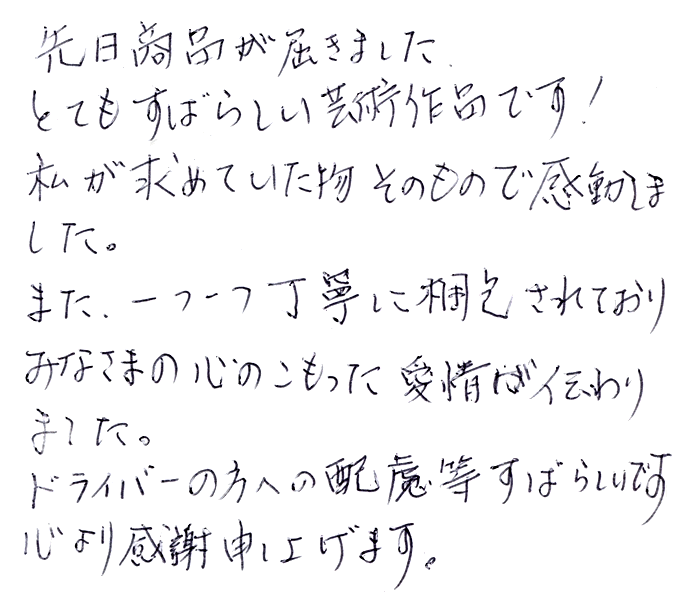 先日商品が届きました.
とてもすばらしい芸術作品です!
私が求めていた物そのもので感動しま
した。
また、一つ一つ丁寧に梱包されており
みなさまの心のこもった愛情が伝わり
ました。
ドライバーの方への配慮等すばらしいです
心より感謝申し上げます。